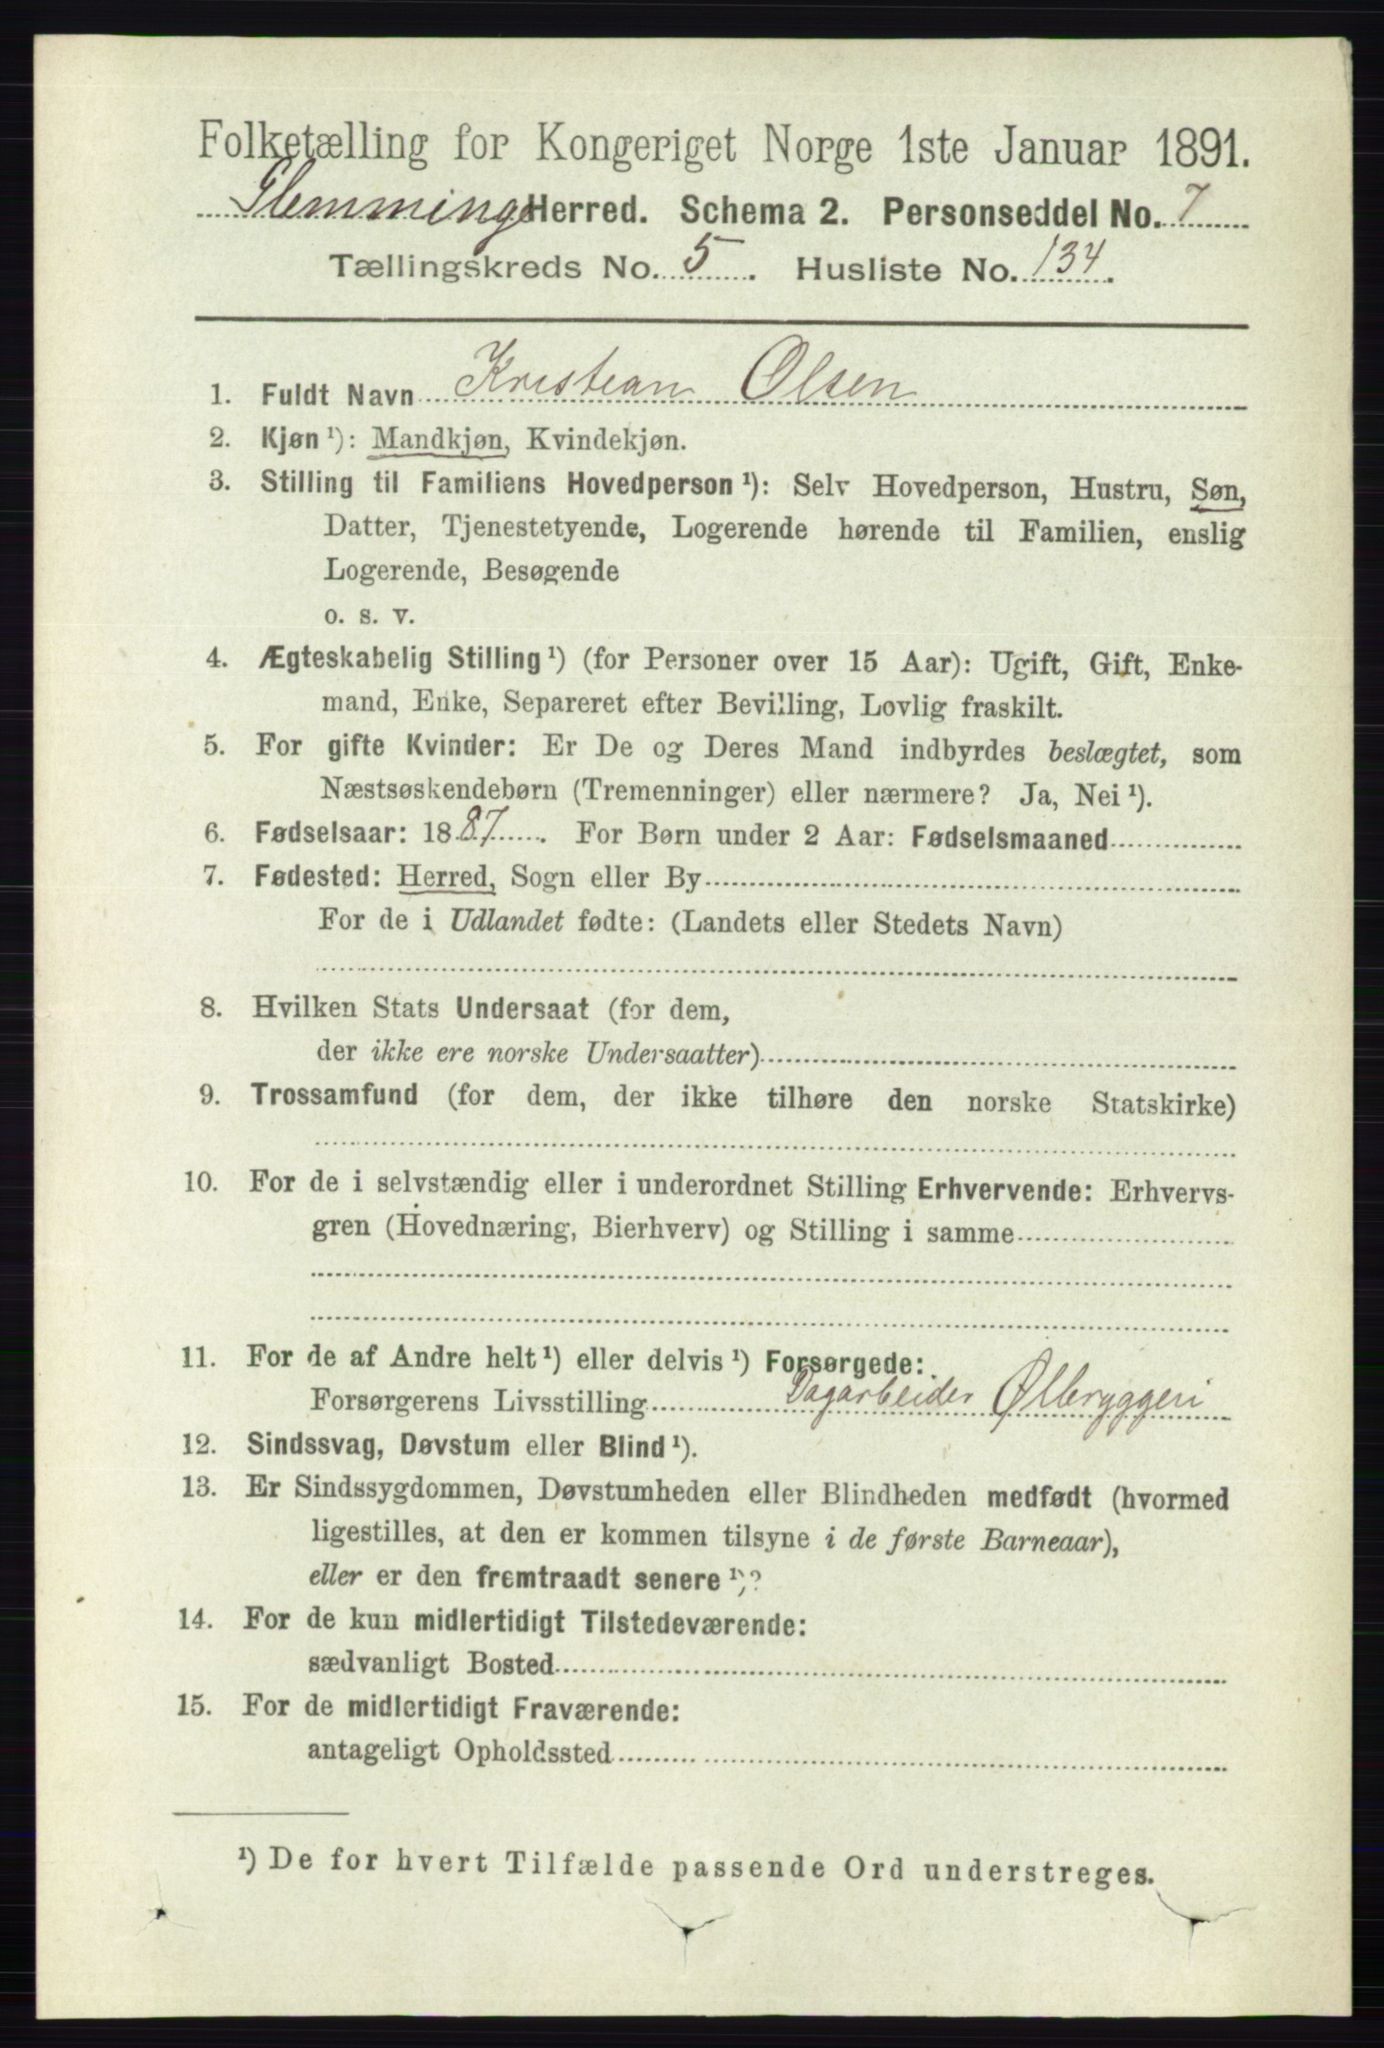 Folketælling for Kongeriget Norge 1ste Januar 1891.
Glemminge Herred. Schema 2. Personseddel No. 7
Tællingskreds No. 5. Husliste No. 134.
1. Fuldt Navn Kristian Olsen
2. Kjøn ¹): Mandkjøn, Kvindekjøn.
3. Stilling til Familiens Hovedperson ¹): Selv Hovedperson, Hustru, Søn,
Datter, Tjenestetyende, Logerende hørende til Familien, enslig
Logerende, Besøgende
o. s. v.
4. Ægteskabelig Stilling ¹) (for Personer over 15 Aar): Ugift, Gift, Enke-
mand, Enke, Separeret efter Bevilling, Lovlig fraskilt.
5. For gifte Kvinder: Er De og Deres Mand indbyrdes beslægtet, som
Næstsøskendebørn (Tremenninger) eller nærmere? Ja, Nei ¹).
6. Fødselsaar: 1887. For Børn under 2 Aar: Fødselsmaaned
7. Fødested: Herred, Sogn eller By
For de i Udlandet fødte: (Landets eller Stedets Navn)
8. Hvilken Stats Undersaat (for dem,
der ikke ere norske Undersaatter)
9. Trossamfund (for dem, der ikke tilhøre den norske Statskirke)
10. For de i selvstændig eller i underordnet Stilling Erhvervende: Erhvervs-
gren (Hovednæring, Bierhverv) og Stilling i samme
11. For de af Andre helt ¹) eller delvis ¹) Forsørgede:
Forsørgerens Livsstilling Dagarbeider Ølbryggeri
12. Sindssvag, Døvstum eller Blind ¹).
13. Er Sindssygdommen, Døvstumheden eller Blindheden medfødt (hvormed
ligestilles, at den er kommen tilsyne i de første Barneaar),
eller er den fremtraadt senere ¹)?
14. For de kun midlertidigt Tilstedeværende:
sædvanligt Bosted
15. For de midlertidigt Fraværende:
antageligt Opholdssted
¹) De for hvert Tilfælde passende Ord understreges.